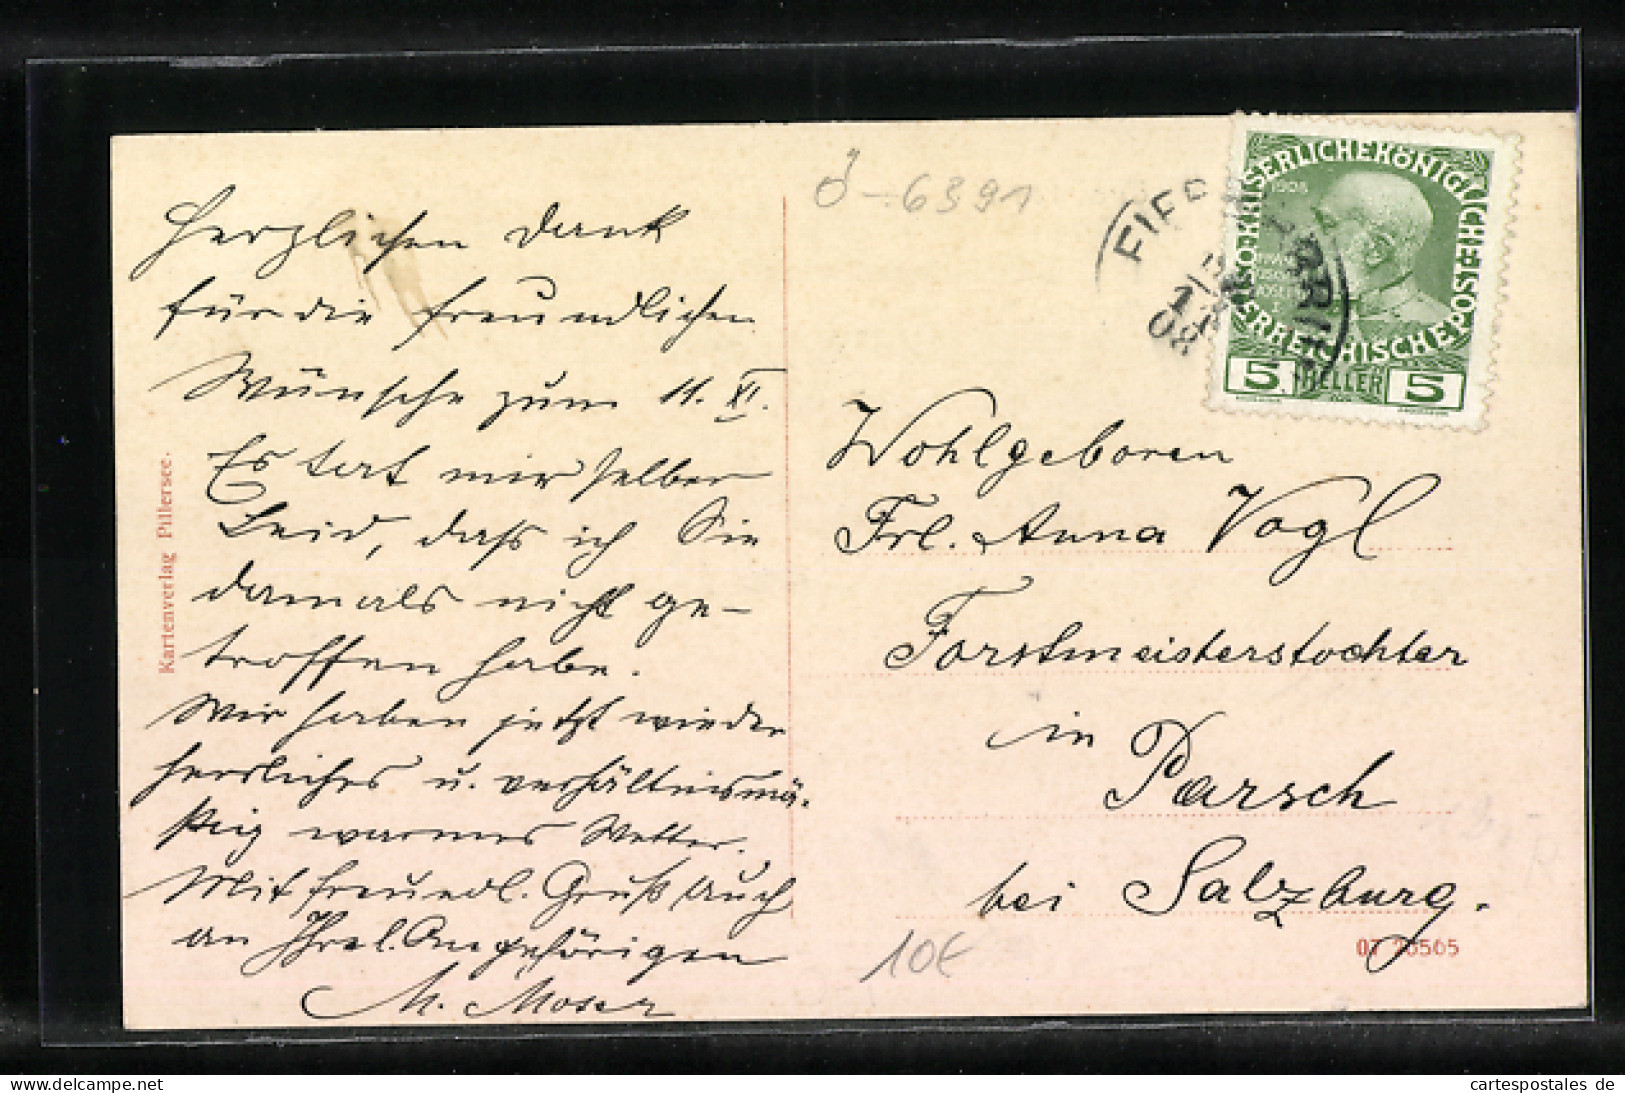 Herzlichen Dank
für die freundlichen
Wünsche zum 11. XI.
Es tat mir selber
Leid, daß ich Sie
damals nicht ge-
troffen habe.
Wir haben jetzt wieder
herrliches u. verhältnismä-
ßig warmes Wetter.
Mit freundl. Gruß auch
an Ihre l. Angehörigen
M. Moser
Kartenverlag Pillersee.
Ö-6391
KAISERLICHEKÖNIGLICHE
ÖSTERREICHISCHEPOST
1908
FRANZ
JOSEF
5 HELLER 5
08
Wohlgeboren
Frl. Anna Vogl
Forstmeisterstochter
in Parsch
bei Salzburg.
10€
07 26505
delcampe.net
cartespostales de